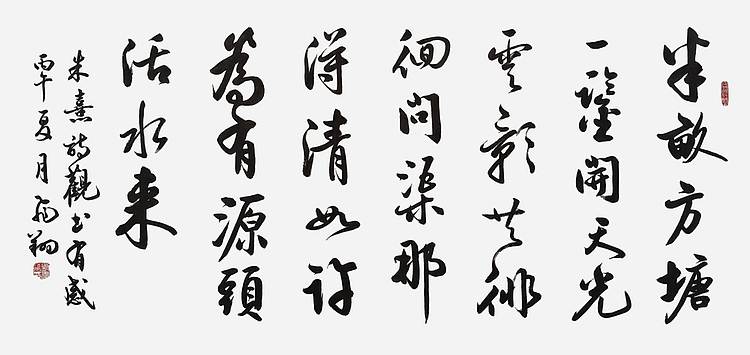 半畝方塘
一鑒開天光
雲影共徘
徊問渠那
得清如許
為有源頭
活水來
朱熹詩觀書有感
丙午夏月